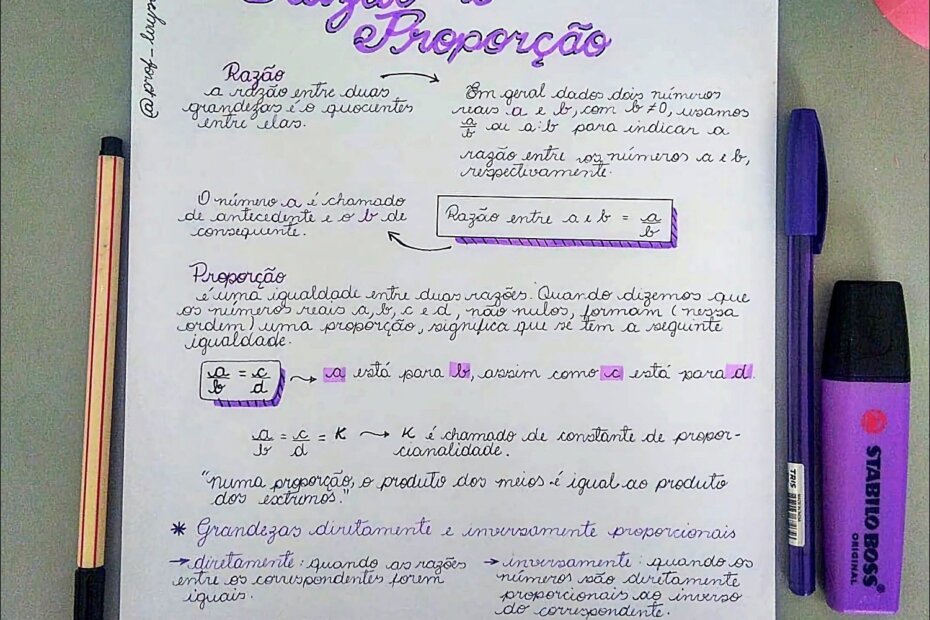 e Proporção
@prof-
Razão
a razão entre duas
grandezas é o quocientes
entre elas.
Em geral dados dois números
reais a e b, com b ≠ 0, usamos
a/b ou a:b para indicar a
razão entre os números a e b,
respectivamente.
O número a é chamado
de antecedente e o b de
consequente.
Razão entre a e b = a/b
Proporção
é uma igualdade entre duas razões. Quando dizemos que
os números reais a, b, c e d, não nulos, formam (nessa
ordem) uma proporção, significa que se tem a seguinte
igualdade.
a/b = c/d → a está para b, assim como c está para d.
a/b = c/d = K → K é chamado de constante de propor-
cianalidade.
"numa proporção, o produto dos meios é igual ao produto
dos extremos."
* Grandezas diretamente e inversamente proporcionais
→ diretamente: quando as razões
entre os correspondentes forem
iguais.
→ inversamente: quando os
números são diretamente
proporcionais ao inverso
do correspondente.
TRIS
STABILO BOSS
ORIGINAL